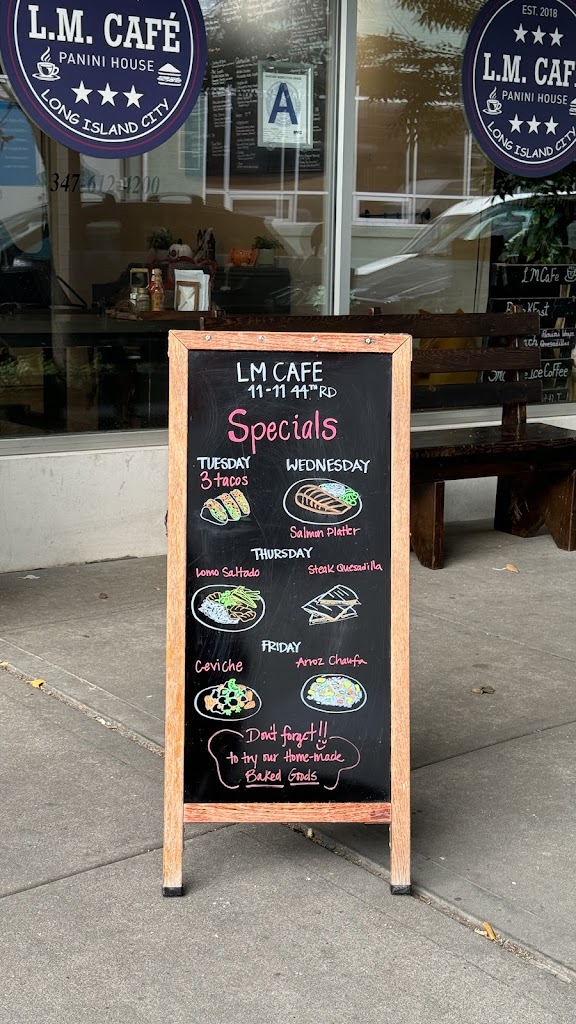 L.M. CAFÉ
PANINI HOUSE
LONG ISLAND CITY
EST. 2018
L.M. CAF
PANINI HOUSE
LONG ISLAND CITY
A
347-612-4200
LM Cafe
Ice Coffee
LM CAFE
11-11 44TH RD
Specials
TUESDAY
3 tacos
WEDNESDAY
Salmon Platter
THURSDAY
Lomo Saltado
Steak Quesadilla
FRIDAY
Ceviche
Arroz Chaufa
Don't forget!!
to try our Home-made
Baked Goods